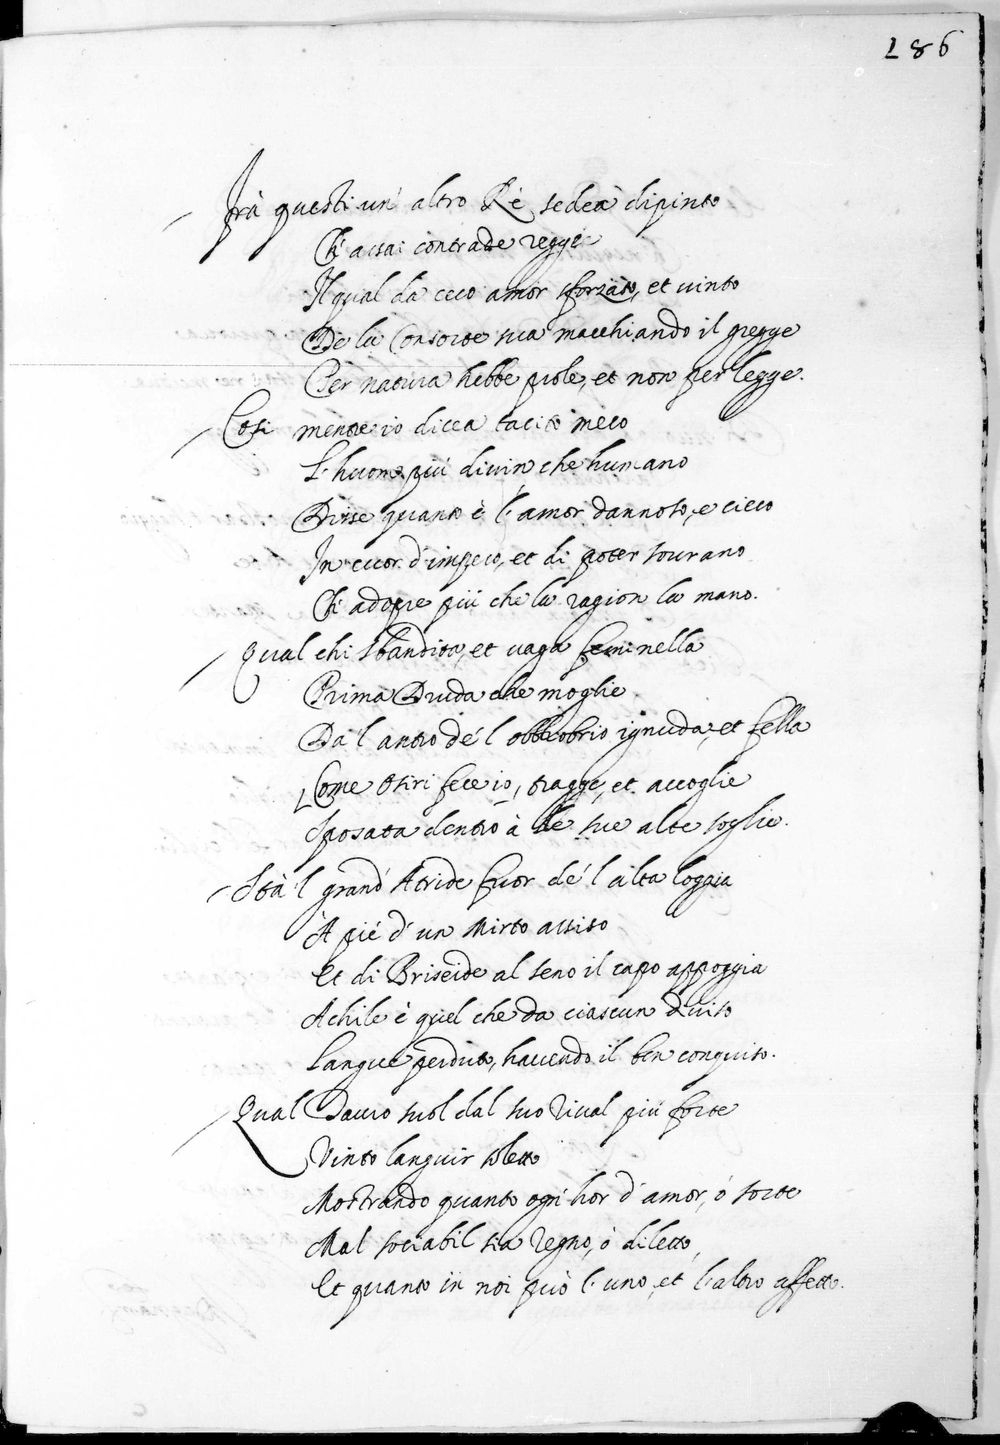 186
Frà questi un' altro Rè sedea dipinto
Ch' assai contrade regge
Il qual da ceco amor sforzato, et vinto
De la Consorte sua macchiando il gregge
Per natura hebbe prole, et non per legge.
Cosi mentre io dicea tacito meco
L'huom più divin, che humano
Disse quanto è l'amor dannoso, e cieco
In cuor d'impero, et di poter sourano
Ch' adopre più che la ragion la mano.
Qual chi sbandita, et vaga feminella
Prima Druda che moglie
Da l'antro de l'obbrobrio ignuda, et fella
Come Osiri fece io, tragge, et accoglie
Sposata dentro à le sue alte soglie.
Stà 'l grand' Atride fuor de l'alta loggia
À piè d'un Mirto assiso
Et di Briseide al seno il capo appoggia
Achile è quel che da ciascun diviso
Langue perduto, havendo il ben conquiso.
Qual Tauro suol dal suo rival più forte
Vinto languir soletto
Mostrando quanto ogn' hor d'amor, ò sorte
Mal sociabil sia regno, ò diletto,
Et quanto in noi può l'uno, et l'altro affetto.